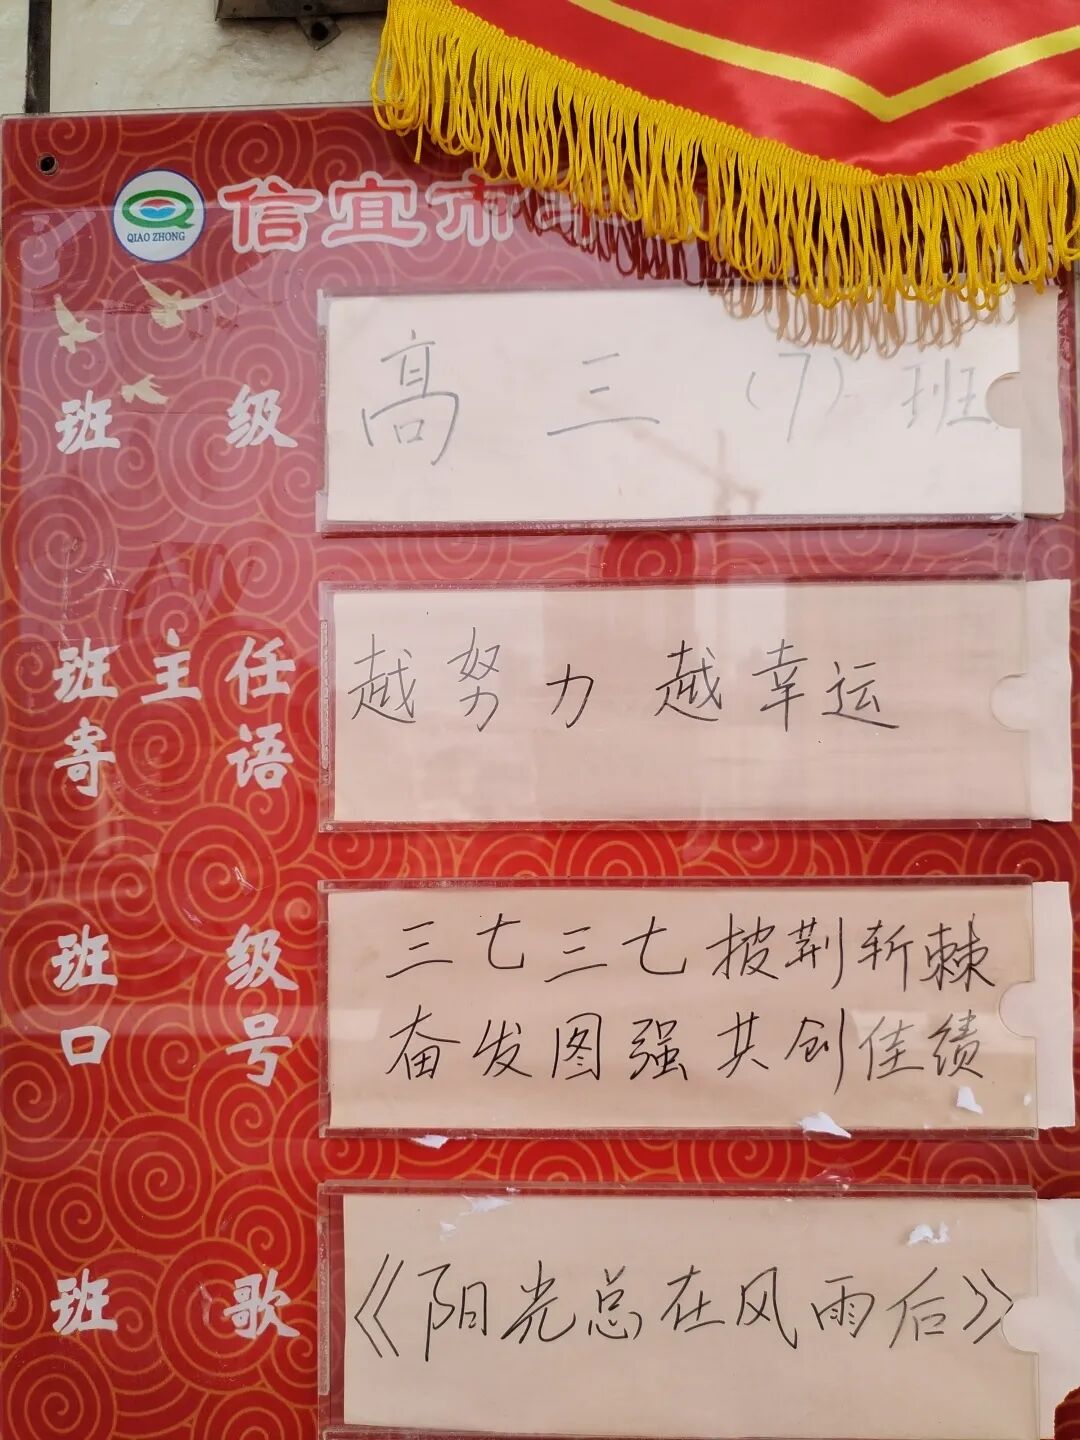 QIAO ZHONG
信宜市
班级
高三（7）班
班主任
寄语
越努力 越幸运
班级
口号
三七三七披荆斩棘
奋发图强共创佳绩
班歌
《阳光总在风雨后》